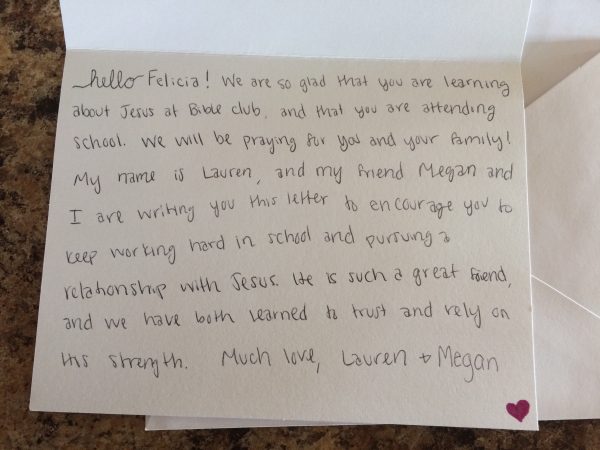 hello Felicia! We are so glad that you are learning
about Jesus at Bible club, and that you are attending
school. We will be praying for you and your family!
My name is Lauren, and my friend Megan and
I are writing you this letter to encourage you to
keep working hard in school and pursuing a
relationship with Jesus. He is such a great friend,
and we have both learned to trust and rely on
His strength. Much love, Lauren + Megan